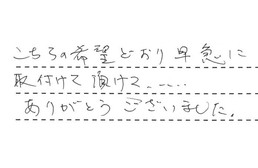 こちらの希望どおり早急に
取付けて頂けて、....
ありがとうございました。